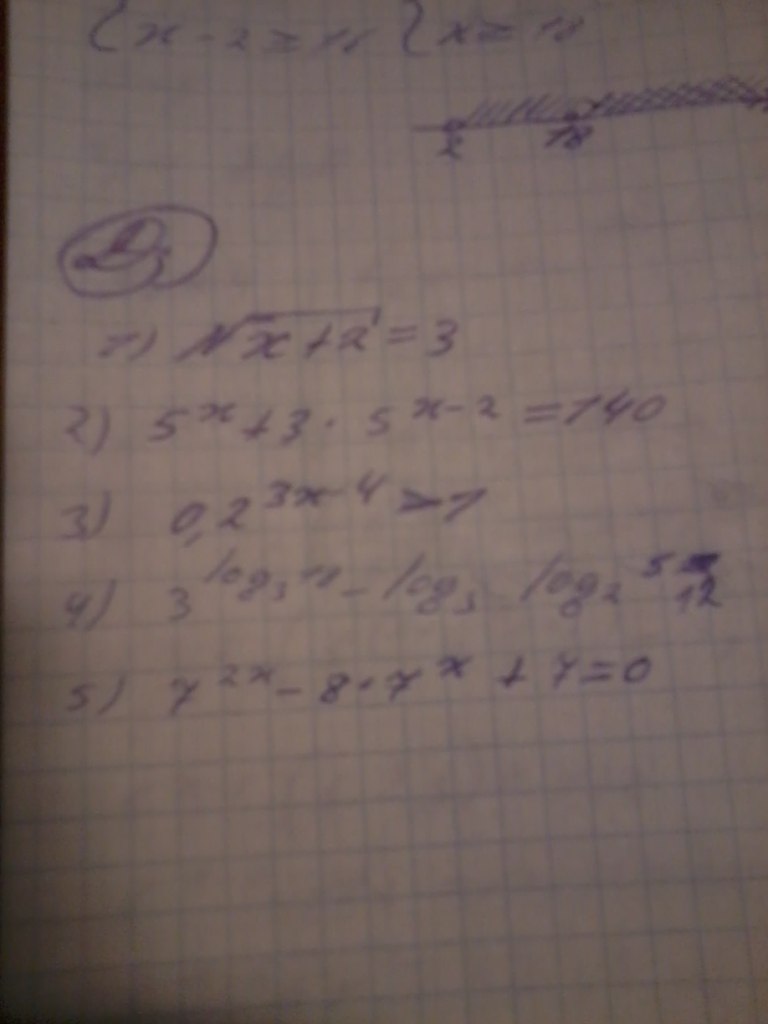 { x - 2 ≥ 16 { x ≥ 18
2 18
Дз
1) √x+2 = 3
2) 5^x + 3 · 5^x-2 = 140
3) 0,2^3x-4 > 1
4) 3^log₃ - log₃ log₂ 12
5) 7^2x - 8 · 7^x + 7 = 0